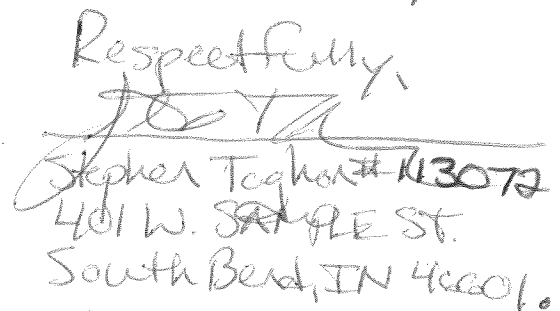 Respectfully,
Stephen Toghar # 113072
401 W. SAMPLE St.
South Bend, IN 46601.